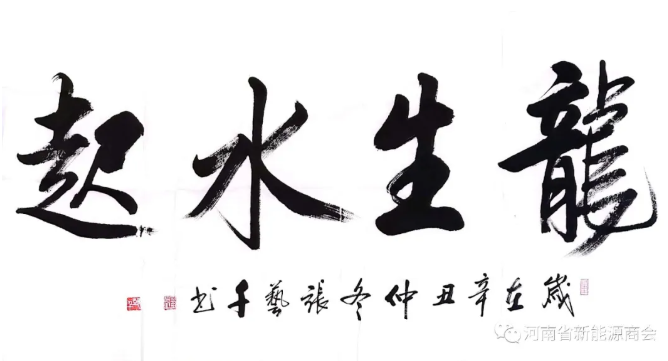 龍生水起
歲在辛丑仲冬張藝千书
河南省新能源商会